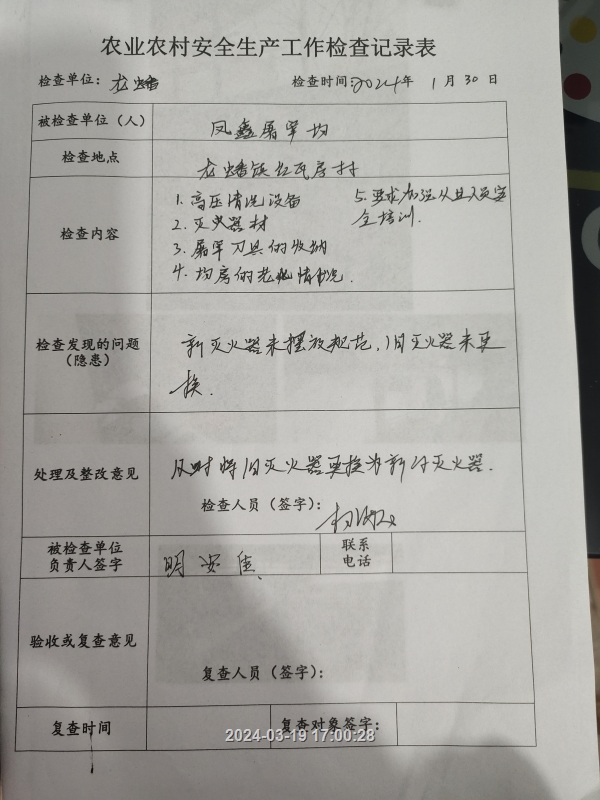 农业农村安全生产工作检查记录表
检查单位：龙蟠 检查时间：2024年 1月 30日
被检查单位（人） 凤鑫屠宰场
检查地点 龙蟠镇红瓦房村
检查内容
1. 高压清洗设备 5. 要求加强从业人员安
全培训.
2. 灭火器材
3. 屠宰刀具的收纳
4. 场房的老化情况.
检查发现的问题
（隐患）
新灭火器未摆放规范，旧灭火器未更
换.
处理及整改意见 及时将旧灭火器更换为新的灭火器.
检查人员（签字）：
被检查单位
负责人签字
明安佳
联系
电话
验收或复查意见
复查人员（签字）：
复查时间 复查对象签字：
2024-03-19 17:00:28